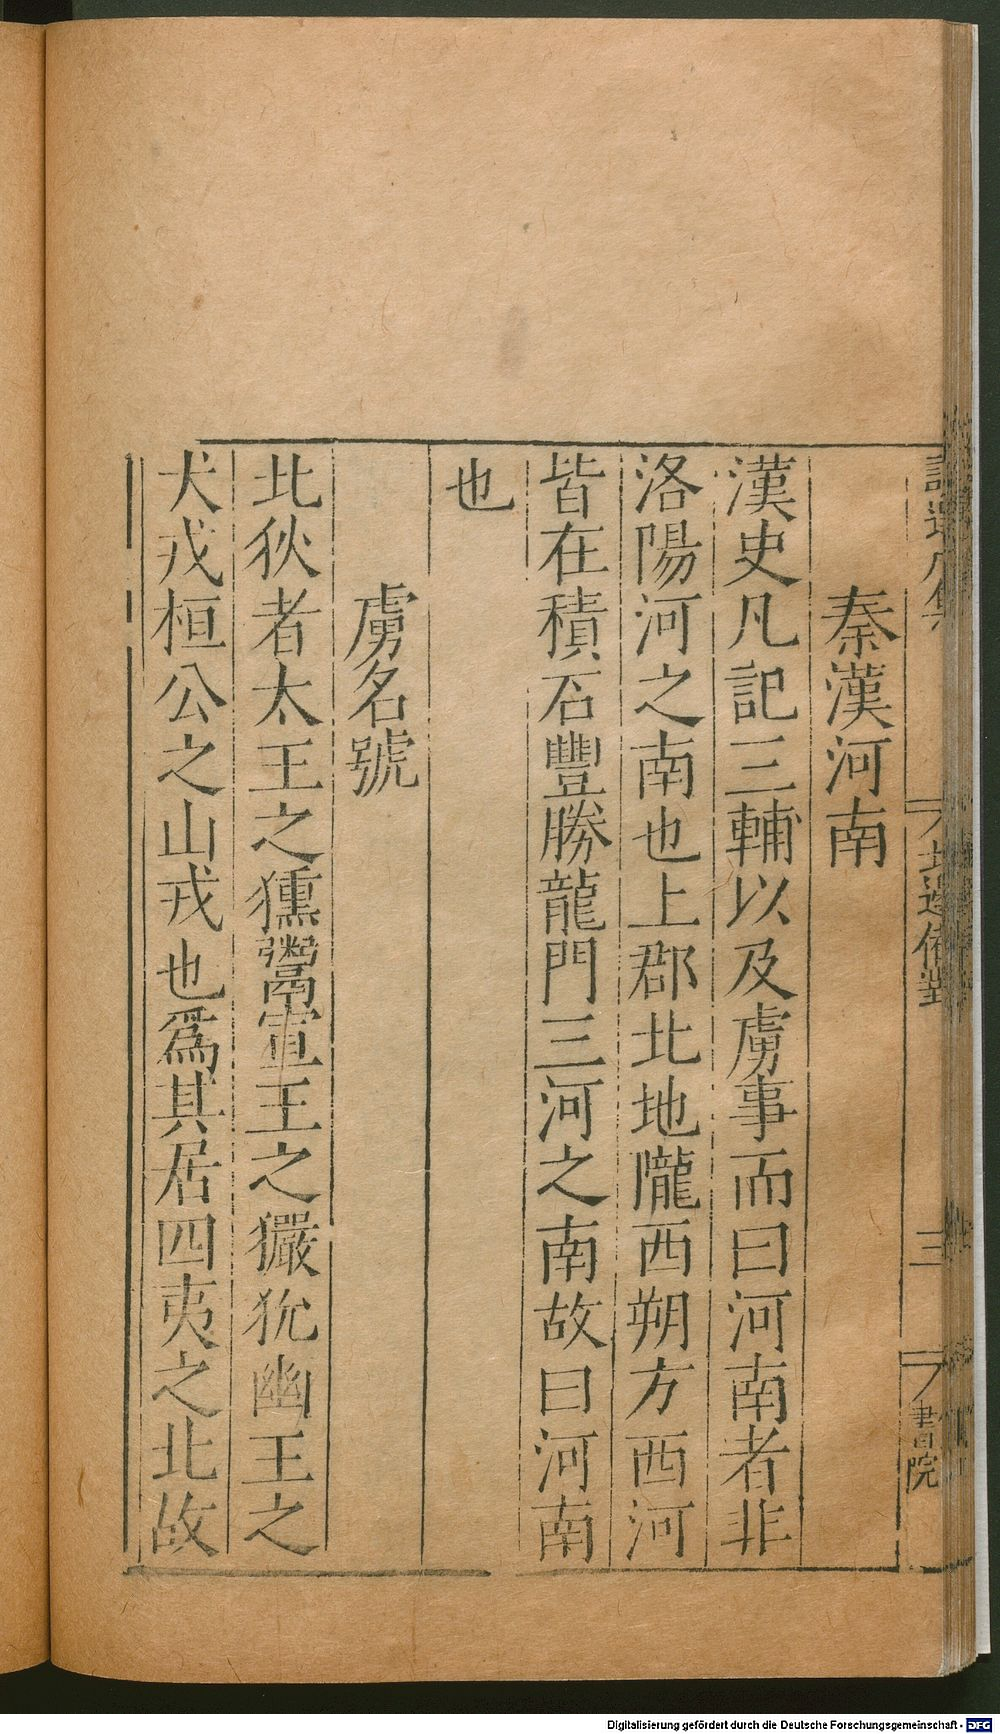 北邊備對
三
書院
秦漢河南
漢史凡記三輔以及虜事而曰河南者非
洛陽河之南也上郡北地隴西朔方西河
皆在積石豐勝龍門三河之南故曰河南
也
虜名號
北狄者太王之獯鬻宣王之玁狁幽王之
犬戎桓公之山戎也爲其居四夷之北故
Digitalisierung gefördert durch die Deutsche Forschungsgemeinschaft - DFG